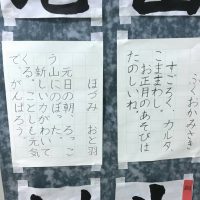 ふくおかみさき
すごろく、カルタ、
こままわし、
お正月のあそびは
たのしいね。
ほづみ　おと羽
元日の朝、ろっこ
う山にのぼった。
新しい力がわいて
くる。ことしも元気
で、がんばろう。